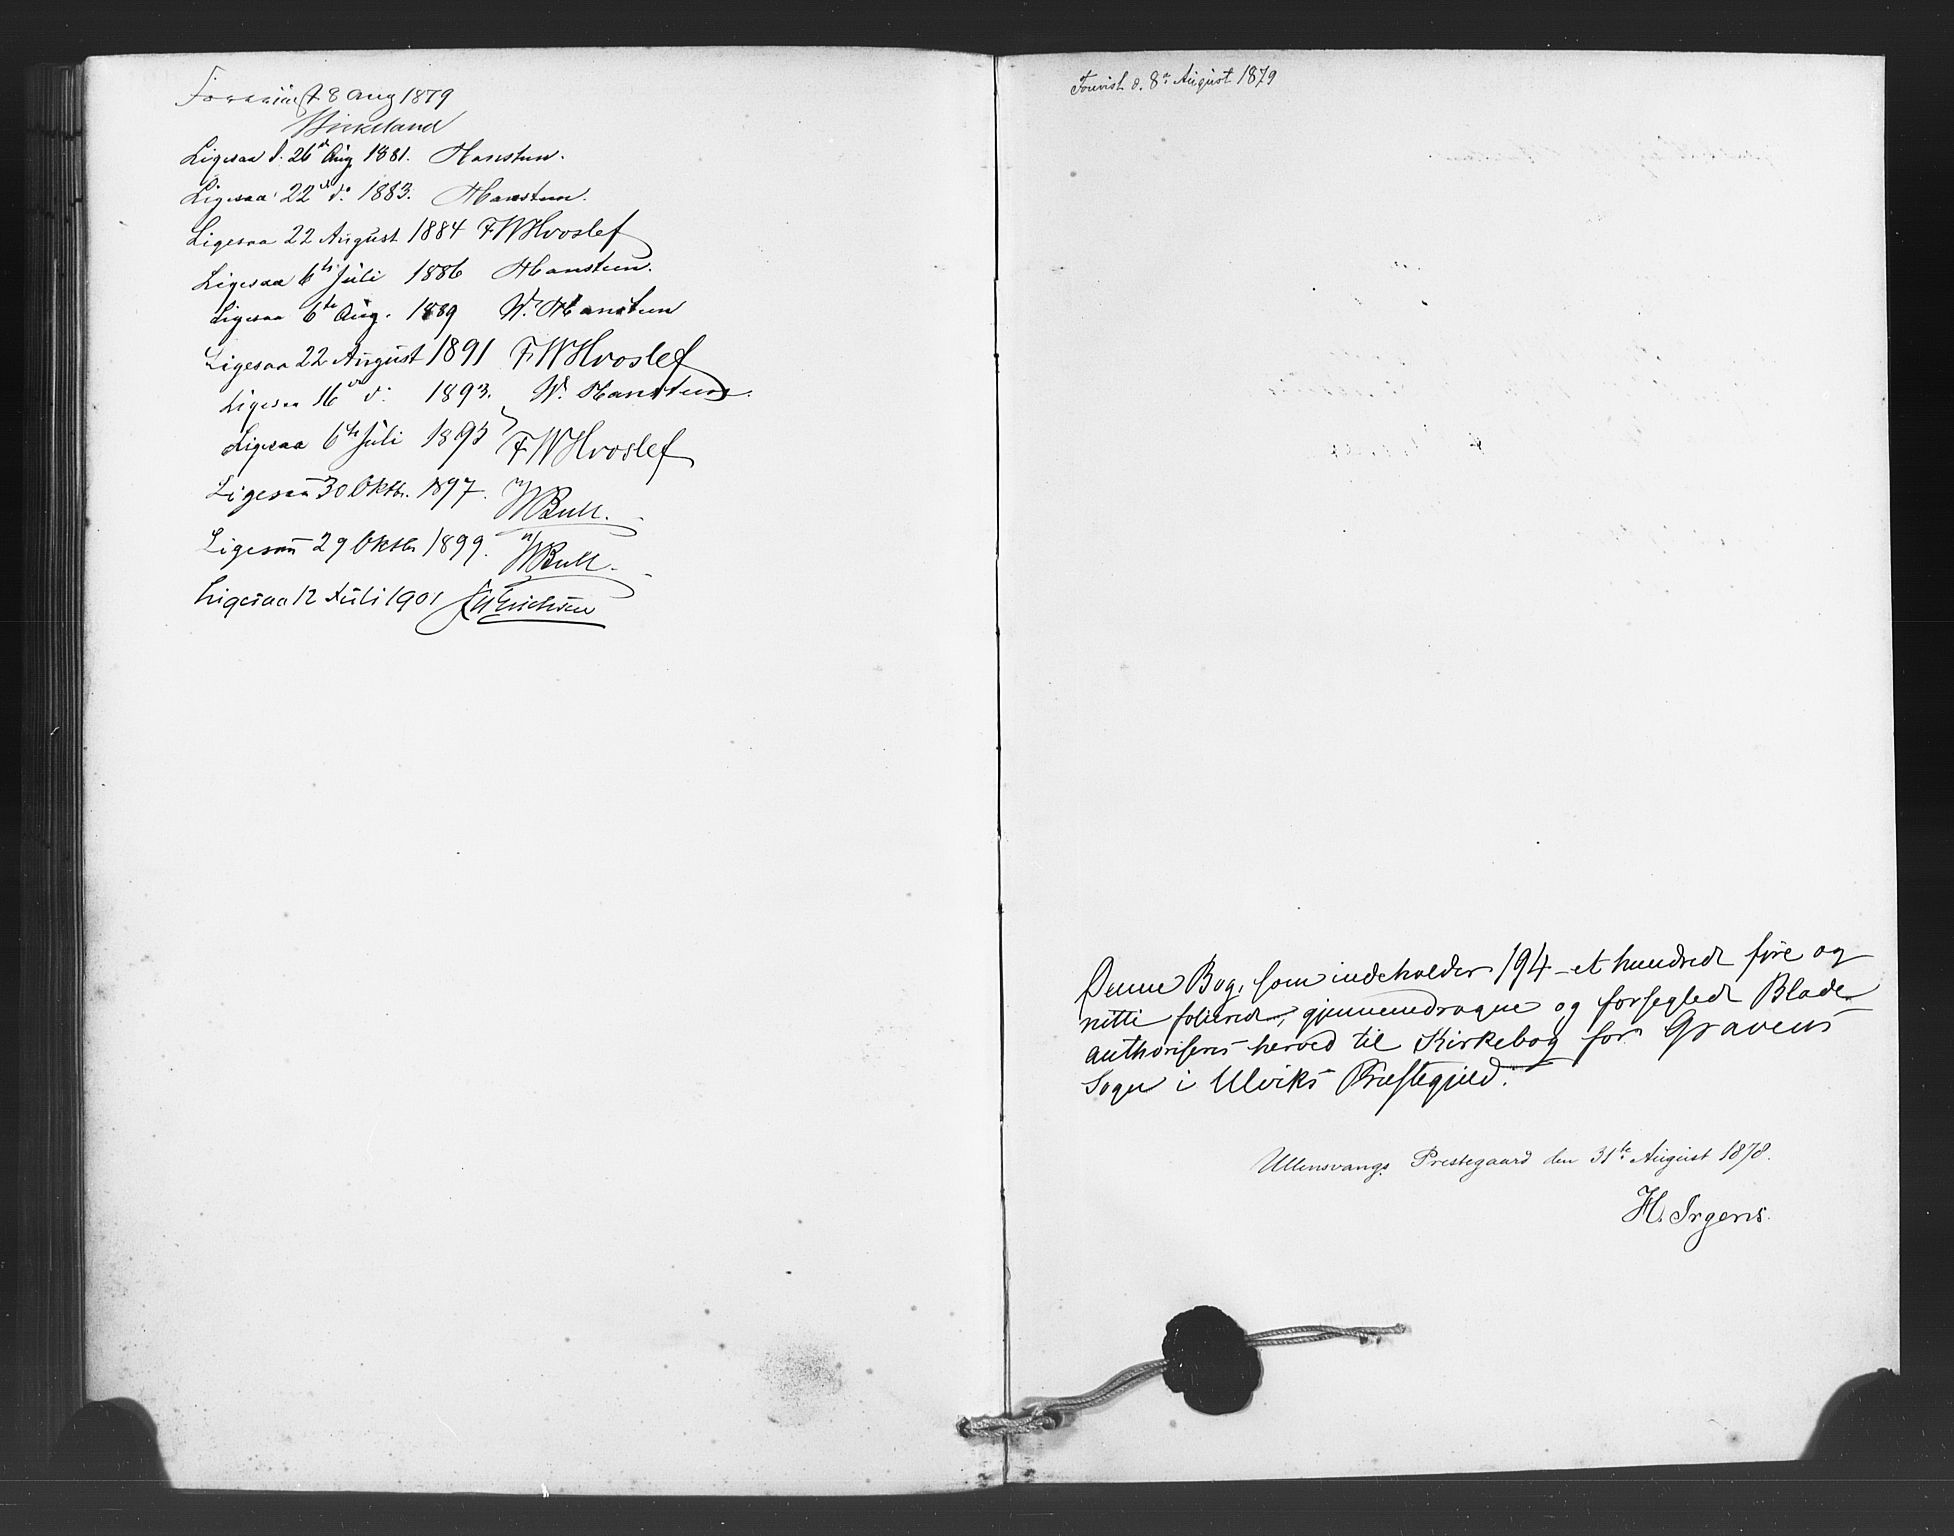 Forevist 8 Aug 1879
Birkeland
Ligesaa d. 26de Aug 1881. Hansteen.
Ligesaa 22de do. 1883. Hansteen.
Ligesaa 22 August 1884 F W Hvoslef
Ligesaa 6te Juli 1886 Hansteen.
Ligesaa 6te Aug. 1889 W. Hansteen
Ligesaa 22 August 1891 F. W Hvoslef
Ligesaa 16de d: 1893. W. Hansteen.
Ligesaa 6te Juli 1895 F W Hvoslef
Ligesaa 30 Oktbr. 1897. Bull.
Ligesaa 29 Oktbr 1899. Bull.
Ligesaa 12 Juli 1901
Forevist d. 8de August 1879
Denne Bog, som indeholder 194 - et hundrede fire og
nitti folierede, gjennemdragne og forseglede Blade
authoriseres herved til Kirkebog for Gravens
Sogn i Ulviks Præstegjeld.
Ullensvangs Prestegaard den 31te August 1878.
H. Irgens.